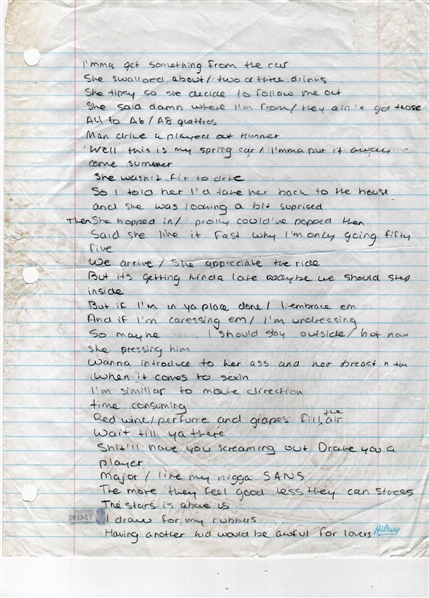 I'mma get something from the car
She swallowed about/ two or three drinks
She tipsy so she decide to follow me out
She said damn where I'm from/ they ain't got those
A4 to A6/A8 quattros
Man drive a played out Hunner
Well this is my spring car/ I'mma put it away
come summer
She wasn't fit to drive
So I told her I'd take her back to the house
and she was looking a bit suprised
Then She hopped in/ I prolly could've popped then
Said she like it fast why I'm only going fifty
five
We arrive/ She appreciate the ride
But its getting kinda late maybe we should step
inside
But if I'm in ya place done/ I embrace em
And if I'm caressing em/ I'm undressing
So maybe I should stay outside/ but now
she pressing him
Wanna introduce to her ass and her breast n em
When it comes to sexin
I'm simillar to movie direction
time consuming
Red wine/perfume and grapes fill the air
Wait till ya there
Shit'll have you screaming out Drake you a
player
Major/ like my nigga SANS
The more they feel good less they can stress
The stars is above us
I draw for my rubbers
Having another kid would be awful for lovers
Hilroy